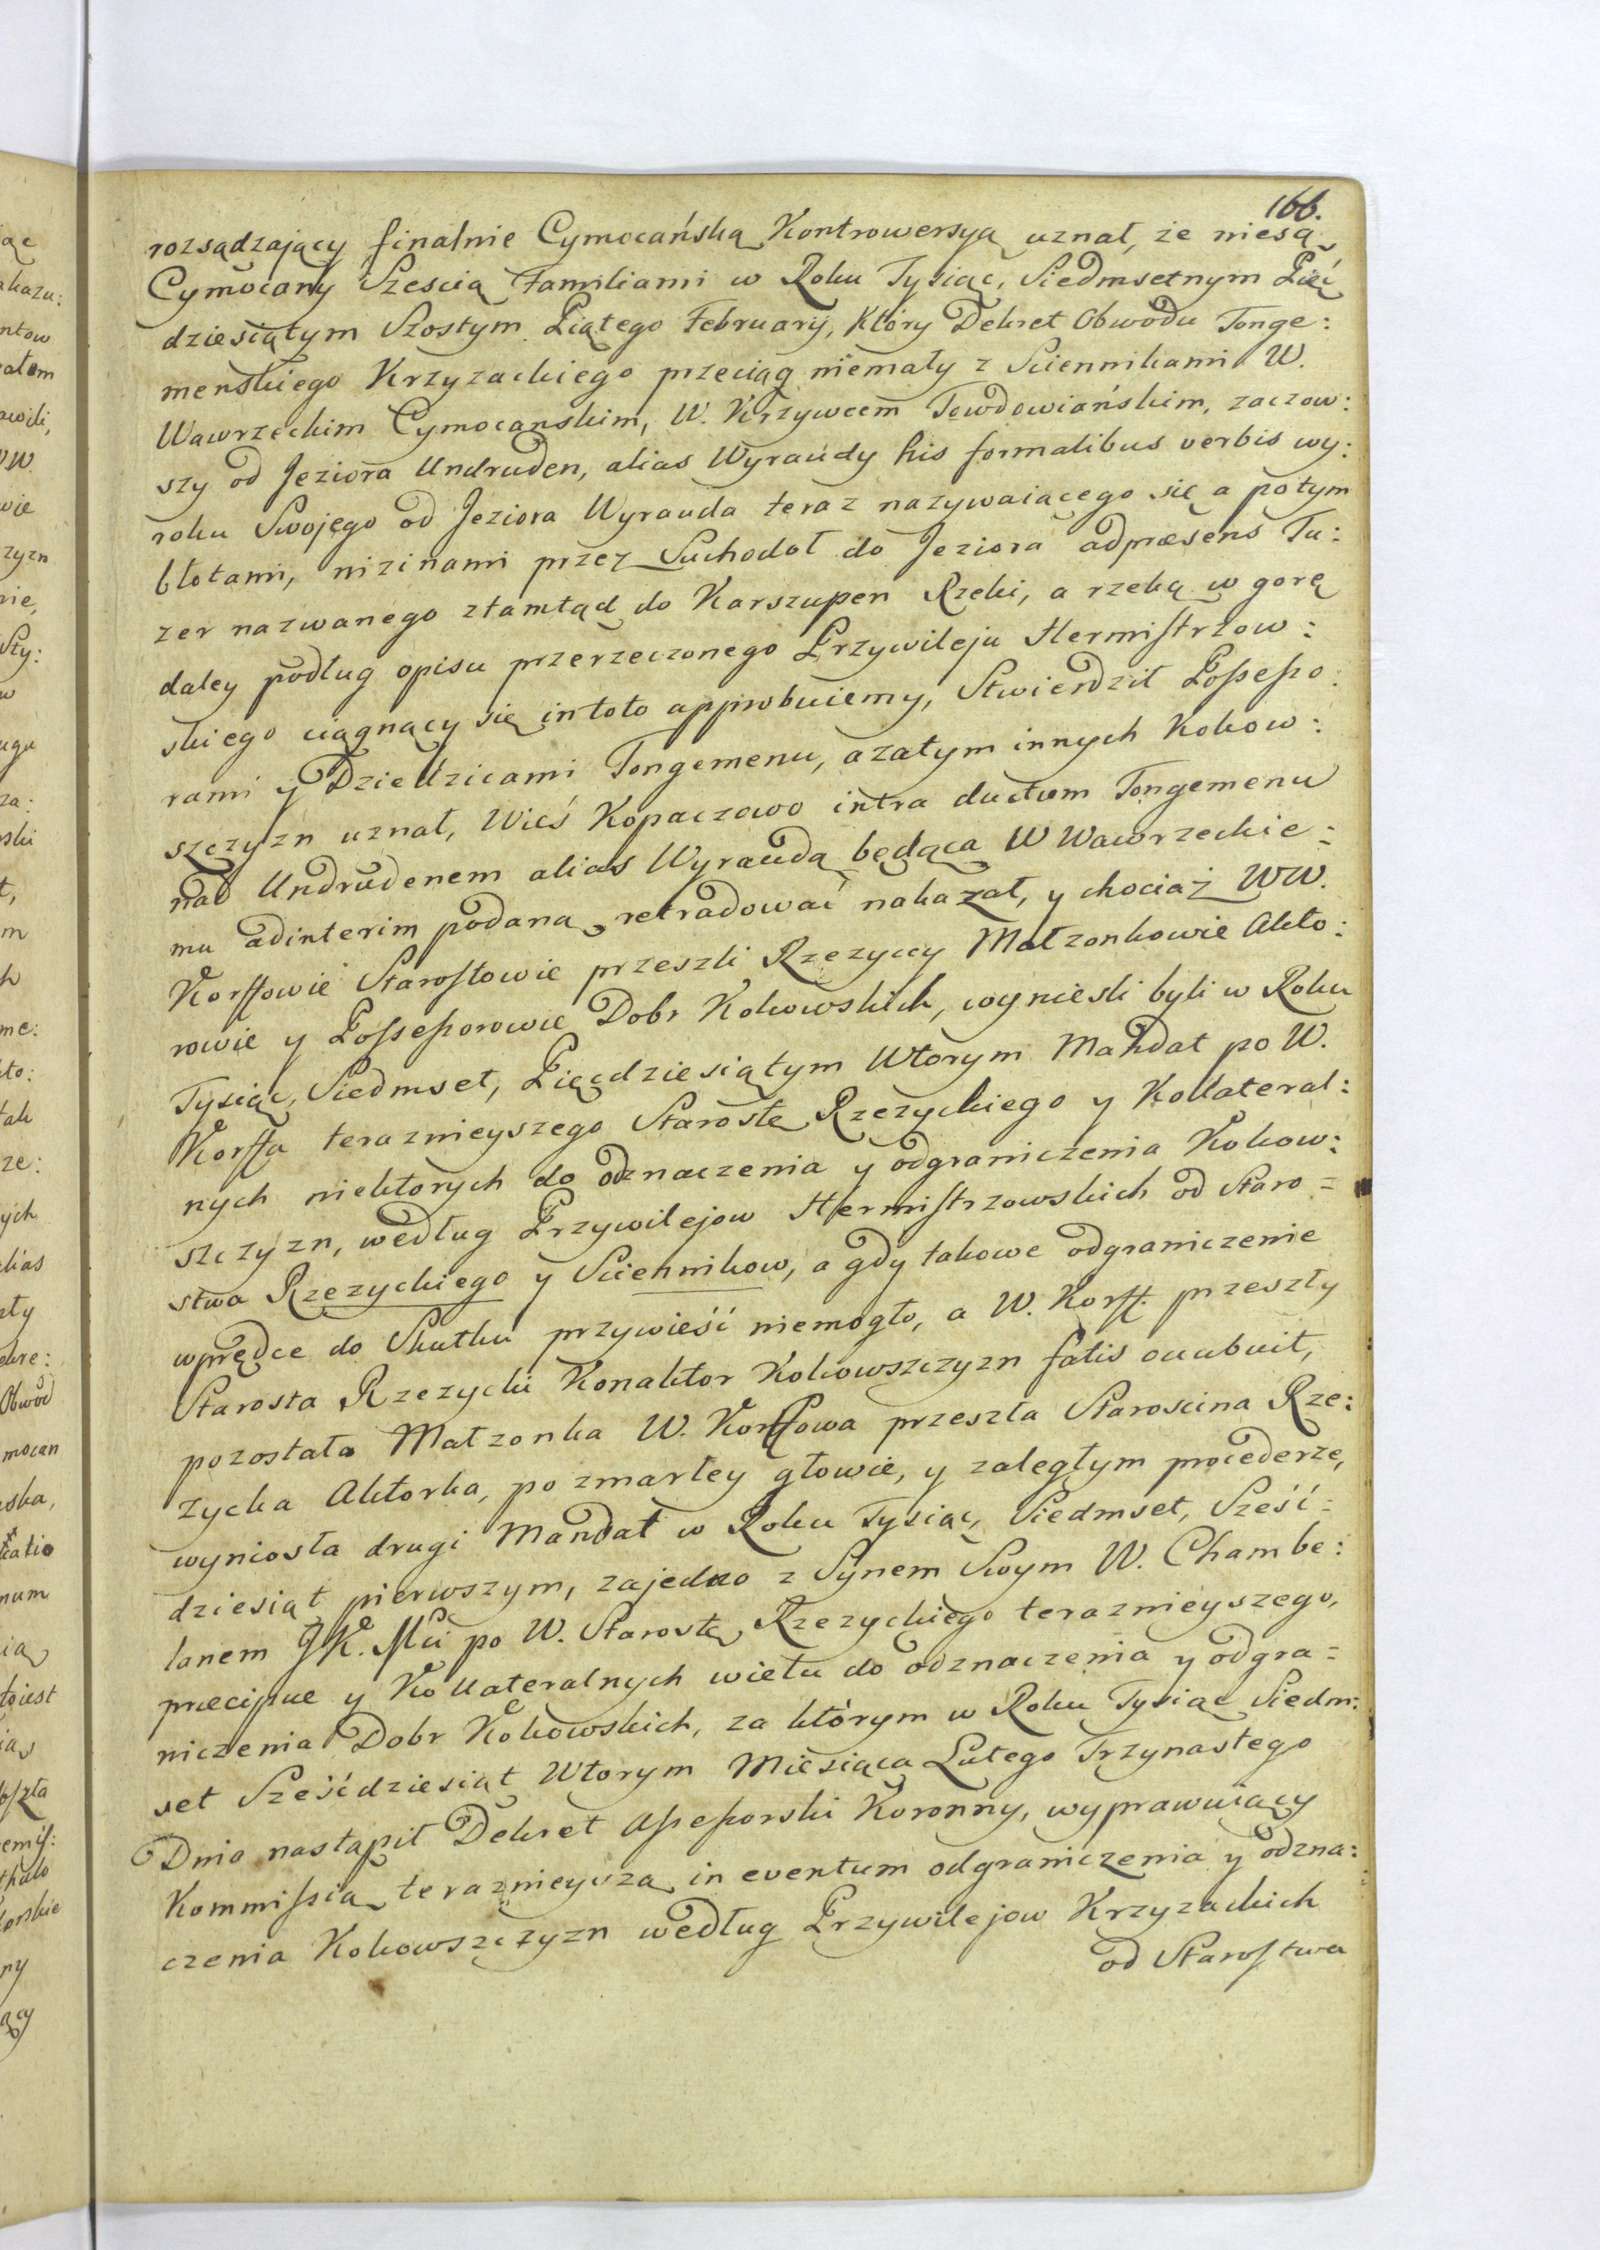 166.
rozsądzający finalnie Cymocańską Kontrowersyą uznał, że niesą
Cymocany Szescią Familiami w Roku Tysiąc, Siedmsetnym Pięć
dziesiątym Szostym Piątego February, Który Dekret Obwodu Tonge:
menskiego Krzyzackiego przeciąg niemały z Sciennikami W.
Wawrzeckim Cymocanskim, W. Krzywcem Towdowiańskim, zaczow:
szy od Jeziora Undruden, alias Wyraudy his formalibus verbis wy:
roku Swojego od Jeziora Wyrauda teraz nazywaiącego się a potym
błotami, nizinami przez Suchodoł do Jeziora adpræsens Tu:
zer nazwanego ztamtąd do Karszupen Rzeki, a rzeką w gorę
daley podług opisu przerzeczonego Przywileju Hermistrzow:
skiego ciągnący się intoto approbuiemy, Stwierdził Possesso:
rami y Dziedzicami Tongemenu, azatym innych Kokow:
szczyzn uznał, Wieś Kopaczowo intra ductum Tongemenu
nad Undrudenem alias Wyraudą będąca W Wawrzeckie=
mu adinterim podaną retradować nakazał, y chociaż WW.
Korffowie Starostowie przeszli Rzezyccy Małzonkowie Akto:
rowie y Possessorowie Dobr Kokowskich, wynieśli byli w Roku
Tysiąc, Siedmset, Pięcdziesiątym Wtorym Mandat po W.
Korffa teraznieyszego Starostę Rzezyckiego y Kollateral:
nych niektorych do odznaczenia y odgraniczenia Kokow:
szczyzn, według Przywilejow Hermistrzowskich od Staro=
stwa Rzezyckiego y Sciennikow, a gdy takowe odgraniczenie
wprędce do Skutku przywieść niemogło, a W. Korff. przeszły
Starosta Rzezycki Konaktor Kokowszczyzn fatis occubuit,
pozostała Małzonka W. Korffowa przeszła Staroscina Rze:
zycka Aktorka, po zmarłey głowie, y zaległym procederze,
wyniosła drugi Mandat w Roku Tysiąc, Siedmset, Sześć=
dziesiąt pierwszym, zajedno z Synem Swym W. Chambe:
lanem JK. Mci po W. Starostę Rzezyckiego teraznieyszego,
præcipue y Kollateralnych wielu do odznaczenia y odgra=
niczenia Dobr Kokowskich, za którym w Roku Tysiąc Siedm:
set Sześćdziesiąt Wtorym Miesiąca Lutego Trzynastego
Dnia nastąpił Dekret Assessorski Koronny, wyprawuiący
Kommissią teraznieyszą in eventum odgraniczenia y odzna:
czenia Kokowszczyzn według Przywilejow Krzyzackich
od Starostwa